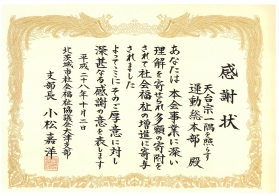 感謝状
天台宗一隅を照らす
運動総本部 殿
あなたは本会事業に深い
理解を寄せられ多額の寄附を
されて社会福祉の増進に寄与
されました
よってここにそのご厚意に対し
深甚なる感謝の意を表します
平成二十八年十月二日
北茨城市社会福祉協議会大津支部
支部長 小松嘉洋